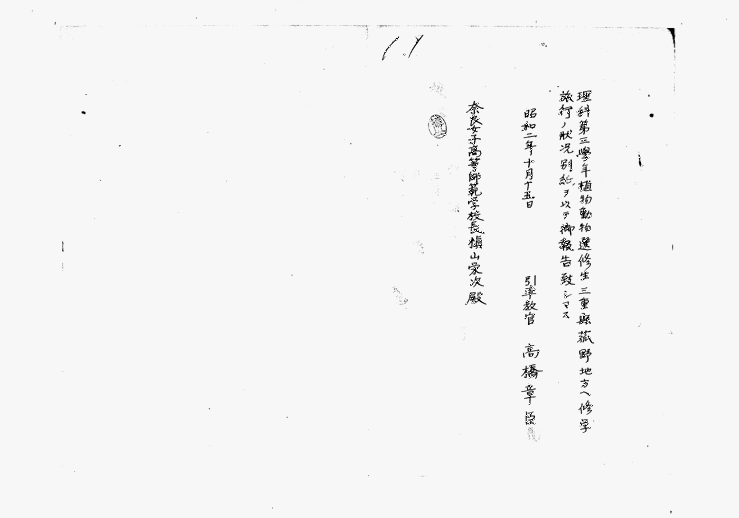 理科第三學年植物動物選修生三重縣菰野地方ヘ修学
旅行ノ狀况別紙ヲ以テ御報告致シマス
昭和二年十月十五日
引率教官 高橋章
奈良女子高等師範学校長槇山栄次殿